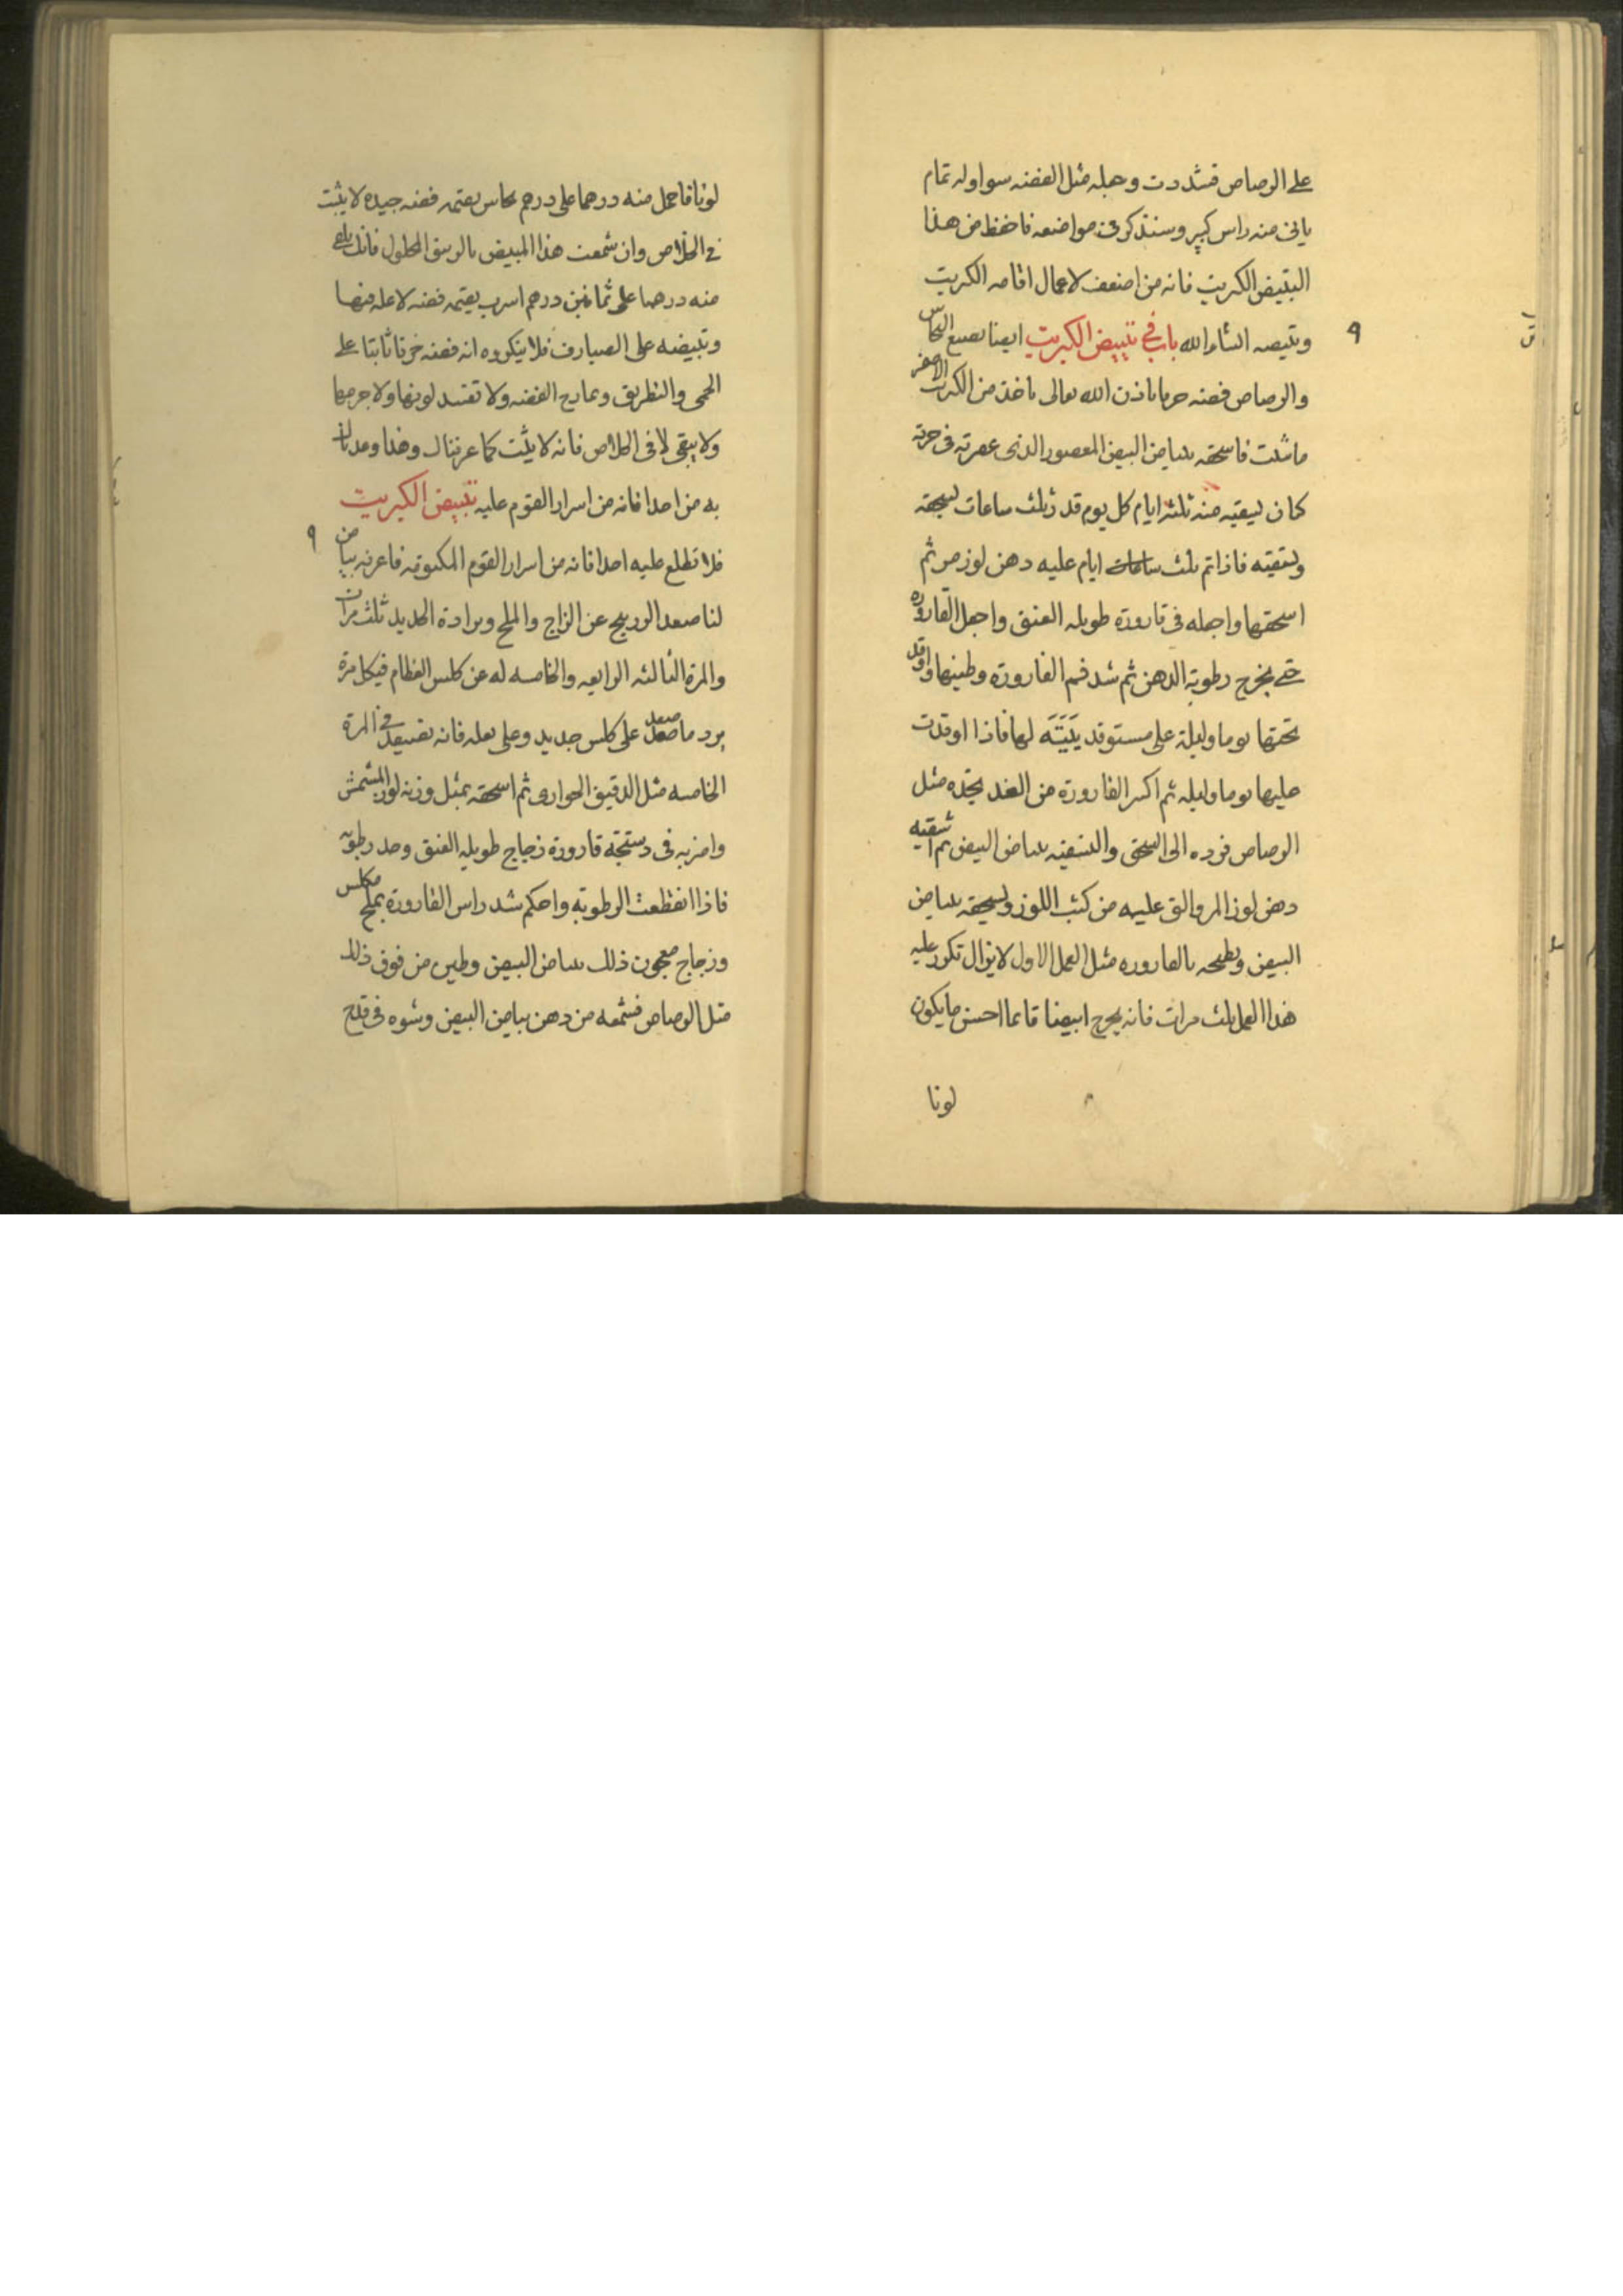 على الرصاص فشددت وجله مثل الفضه سوا وله تمام
ياتى منه راس كبير وسنذكره فى مواضعه فاحفظ من هذا
التبيض الكريت فانه من اضعف الاعمال اقامه الكريت
وتبيضه انشاء الله باب فى تبييض الكبريت ايضا يصبغ النحاس
والرصاص فضه حرما باذن الله تعالى تاخذ من الكريت الاصفر
ما شئت فاسحقه ببياض البيض المعصور الذى عصرته فى خرقه
كان ليقيه منه ثلثه ايام كل يوم قدر ثلث ساعات ليسحقه
وتسقيه فاذا تم ثلث ساعات ايام عليه دهن لوز مر ثم
اسحقها واجعله فى قاروره طويله العنق واجعل القاروره
حتى يخرج رطوبة الدهن ثم شد فم القارورة وطينها واوقد
تحتها يوما وليلة على مستوقد لها فاذا اوقدت
عليها يوما وليله ثم اكسر القارورة من الغد تجده مثل
الرصاص فرده الى السحق والتسقيه ببياض البيض ثم اسقيه
دهن لوز المر والق عليه من كتب اللوز وليسحقه ببياض
البيض وتطبخه بالقاروره مثل العمل الاول لا يزال تكرر عليه
هذا العمل ثلث مرات فانه يخرج ابيضا قائما احسن ما يكون
لونا
لونا فاحمل منه درهما على درهم نحاس يقيمه فضه جيده لا يثبت
فى الخلاص وان شمعت هذا المبيض بالزيبق المحلول فانك تلقى
منه درهما على ثمانين درهم اسرب يقيمه فضه لا عله فيها
وتبيضه على الصيارف فلا ينكروه انه فضه ثابتا على
الحمى والتطريق وتمازج الفضه ولا تفسد لونها ولا جرمها
ولا يبقى لا فى الخلاص فانه لا يثبت كما عرفناك وهذا
به من احدا فانه من اسرار القوم عليه تبييض الكبريت
فلا تطلع عليه احدا فانه من اسرار القوم المكتومه فاعرفه بياض
لنا صعد الزرنيخ عن الزاج والملح وبرادة الحديد ثلث مرات
والمرة الثالثه الرابعه والخامسه له عن كلس العظام فيكل مرة
يرد ما صعد على كلس جديد وعلى نعله فانه تصعد فى المرة
الخامسه مثل الدقيق الحوارى ثم اسحقه بمثل وزنه لوز المشمش
واضربه فى دستجه قارورة زجاج طويله العنق وصد رطوبته
فاذا انقطعت الرطوبة واحكم شد راس القارورة بملح مكلس
وزجاج معجون ذلك ببياض البيض وطين من فوق ذلك
مثل الرصاص فشمعه من دهن بياض البيض وشوه فى قدح